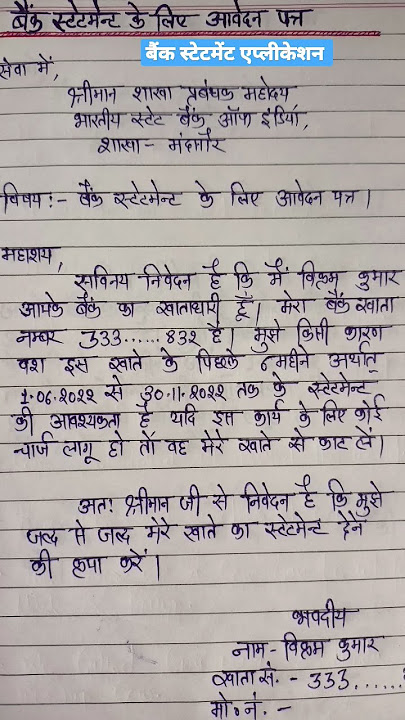 बैंक स्टेटमेन्ट के लिए आवेदन पत्र
बैंक स्टेटमेंट एप्लीकेशन
सेवा में,
श्रीमान शाखा प्रबंधक महोदय
भारतीय स्टेट बैंक ऑफ इंडिया,
शाखा - मंदागौर
विषय :- बैंक स्टेटमेन्ट के लिए आवेदन पत्र ।
महाशय,
सविनय निवेदन है कि मैं विक्रम कुमार
आपके बैंक का खाताधारी हूँ। मेरा बैंक खाता
नम्बर 333......832 है। मुझे किसी कारण
वश इस खाते के पिछले ८ महीने अर्थात्
1.06.2022 से 30.11.2022 तक के स्टेटमेन्ट
की आवश्यकता है यदि इस कार्य के लिए कोई
चार्ज लागू हो तो वह मेरे खाते से काट लें।
अतः श्रीमान जी से निवेदन है कि मुझे
जल्द से जल्द मेरे खाते का स्टेटमेन्ट देने
की कृपा करें।
भवदीय
नाम - विक्रम कुमार
खाता सं. - 333......
मो॰ नं. -